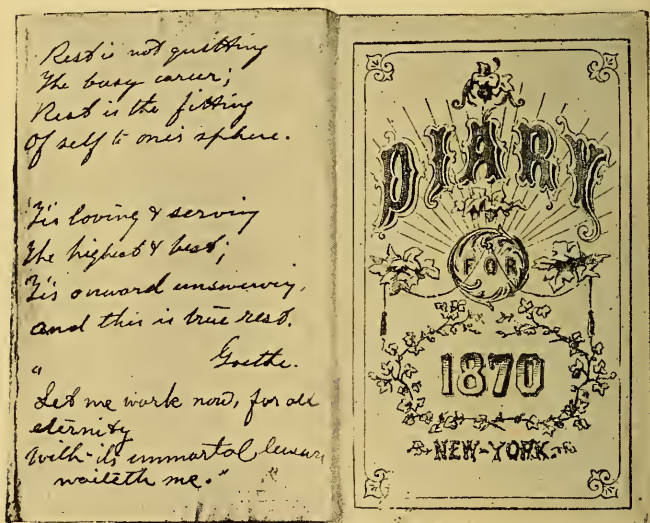 Rest is not quitting
The busy career;
Rest is the fitting
Of self to one's sphere.
'Tis loving & serving
The highest & best;
'Tis onward unswerving,
and this is true rest.
Goethe.
"Let me work now, for all
eternity
With its immortal leisure
waiteth me."
DIARY
FOR
1870
NEW-YORK.